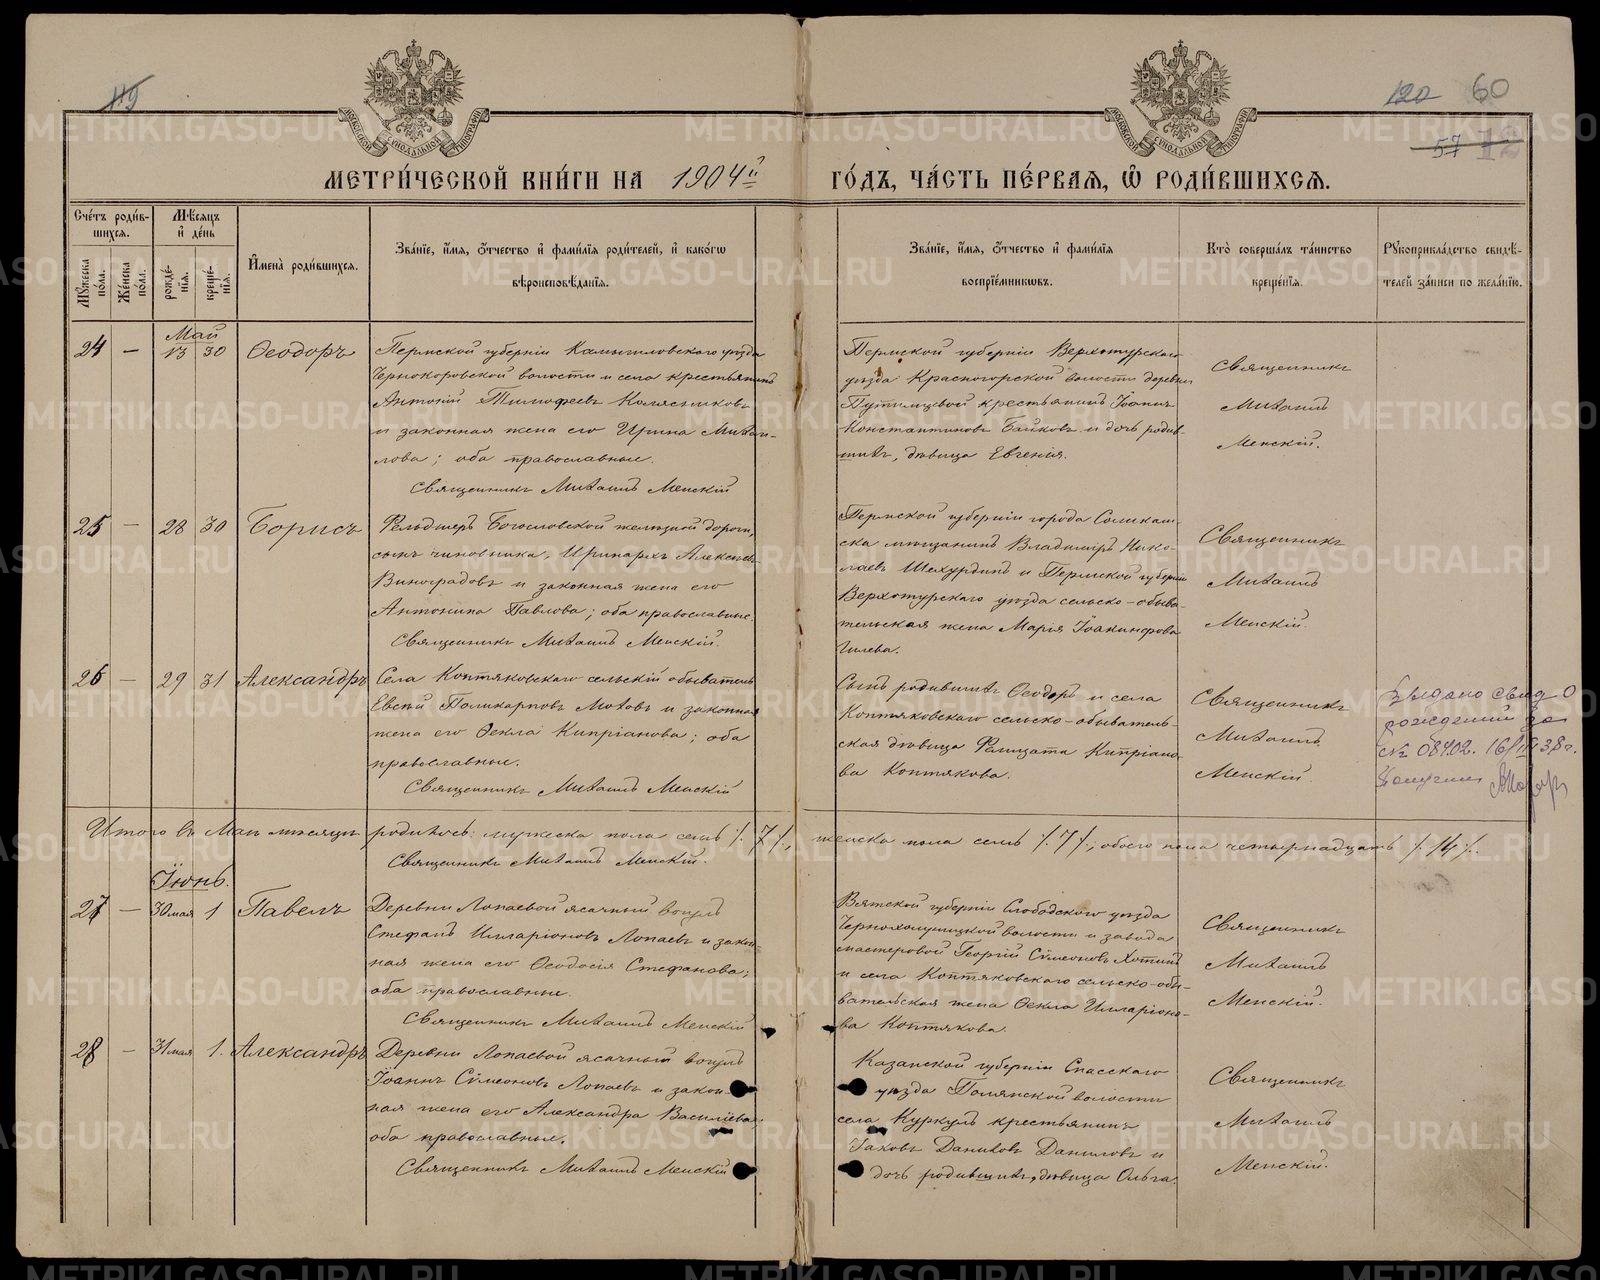 119
120 60
57 12
МОСКОВСКОЙ СѴНОДАЛЬНОЙ ТИПОГРАФІИ
МОСКОВСКОЙ СѴНОДАЛЬНОЙ ТИПОГРАФІИ
МЕТРИ́ЧЕСКОЙ КНИ́ГИ НА 1904й ГО́ДЪ, ЧА́СТЬ ПЕ́РВАѦ, Ѡ РОДИ́ВШИХСѦ.
Сче́тъ роди́в-
шихся.
Мѣ́сяцъ
и де́нь
Му́жеска по́ла.
Же́нска по́ла.
рожде́-нїя.
креще́-нїя.
И҆мена̀ роди́вшихся.
Зва́нїе, и҆́мя, ѻ҆́тчество и҆ фами́лїя роди́телей, и҆ како́гѡ
вѣроисповѣ́данїя.
Зва́нїе, и҆́мя, ѻ҆́тчество и҆ фами́лїя
воспрїе́мникѡвъ.
Кто̀ соверша́лъ та́инство
креще́нїя.
Рꙋкоприкла́дство свидѣ́-
телей за́писи по жела́нїю.
Май
24 — 13 30 Ѳеодоръ
Пермской губерніи Камышловскаго уѣзда
Чернокоровской волости и села крестьянинъ
Антоній Тимофеевъ Колясниковъ
и законная жена его Ирина Михаи-
лова; оба православные.
Священникъ Михаилъ Менскій
Пермской губерніи Верхотурскаго
уѣзда Красногорской волости деревни
Путимцевой крестьянинъ Іоаннъ
Константиновъ Байковъ и дочь родив-
шихъ, дѣвица Евгенія.
Священникъ
Михаилъ
Менскій.
25 — 28 30 Борисъ
Фельдшеръ Богословской желѣзной дороги,
сынъ чиновника, Иринархъ Алексѣевъ
Виноградовъ и законная жена его
Антонина Павлова; оба православные.
Священникъ Михаилъ Менскій.
Пермской губерніи города Соликам-
ска мѣщанинъ Владиміръ Нико-
лаевъ Шехурдинъ и Пермской губерніи
Верхотурскаго уѣзда сельско-обыва-
тельская жена Марія Іоакинфова
Гилева.
Священникъ
Михаилъ
Менскій.
26 — 29 31 Александръ
Села Коптяковскаго сельскій обыватель
Евсѣй Поликарповъ Мотовъ и законная
жена его Ѳекла Кипріанова; оба
православные.
Священникъ Михаилъ Менскій
Сынъ родившихъ Ѳеодоръ и села
Коптяковскаго сельско-обыватель-
ская дѣвица Фелицата Кипріано-
ва Коптякова.
Священникъ
Михаилъ
Менскій.
Выдано свид о
рождении за
№ 08402. 16/III 38 г.
Итого въ Маѣ мѣсяцѣ родилось: мужеска пола семь /. 7 /., женска пола семь /. 7 /.; обоего пола четырнадцать /. 14 /.
Священникъ Михаилъ Менскій.
Іюнь.
27 — 30 мая 1 Павелъ
Деревни Лопаевой ясачный вогулъ
Стефанъ Илларіоновъ Лопаевъ и закон-
ная жена его Ѳеодосія Стефанова;
оба православные.
Священникъ Михаилъ Менскій
Вятской губерніи Слободского уѣзда
Чернохолуницкой волости и завода
мастеровой Георгій Сѵмеоновъ Хотинъ
и села Коптяковскаго сельско-обы-
вательская жена Ѳекла Илларіоно-
ва Коптякова.
Священникъ
Михаилъ
Менскій.
28 — 31 мая 1. Александръ
Деревни Лопаевой ясачный вогулъ
Іоаннъ Сѵмеоновъ Лопаевъ и закон-
ная жена его Александра Василіева;
оба православные.
Священникъ Михаилъ Менскій
Казанской губерніи Спасскаго
уѣзда Полянской волости
села Куркуль крестьянинъ
Іаковъ Даниловъ Даниловъ и
дочь родившихъ, дѣвица Ольга.
Священникъ
Михаилъ
Менскій.
METRIKI.GASO-URAL.RU